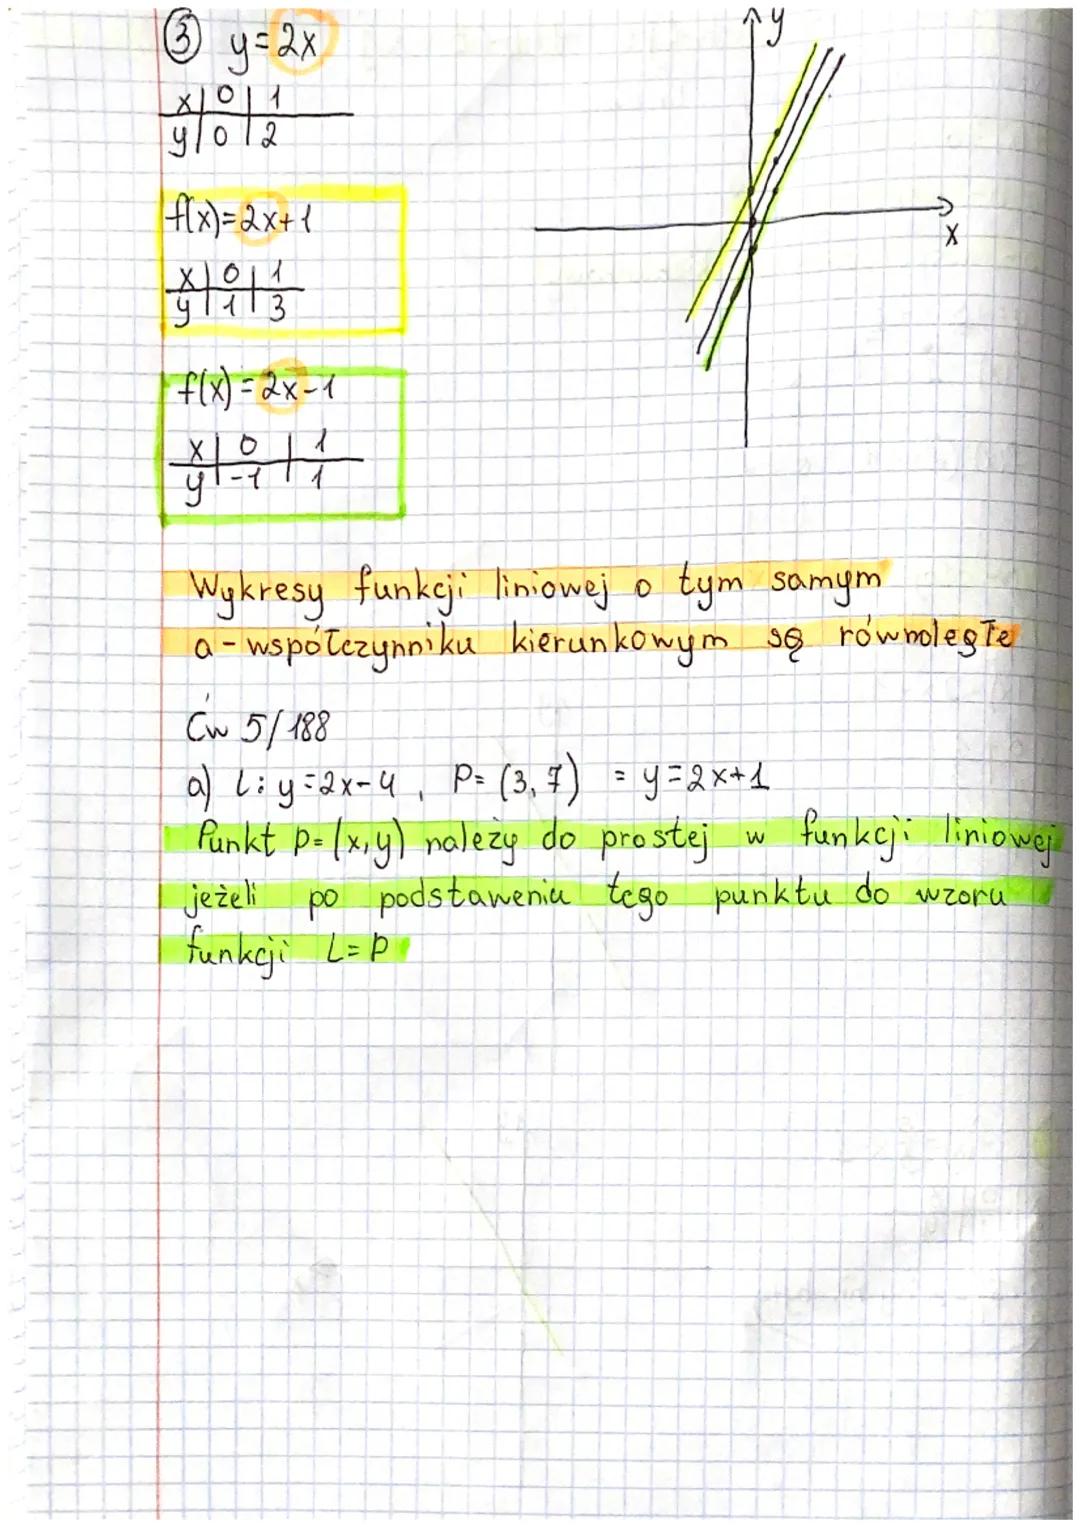 ③ y=2x
x | 0 | 1
y | 0 | 2
f(x)=2x+1
x | 0 | 1
y | 1 | 3
f(x)=2x-1
x | 0 | 1
y | -1 | 1
y
x
Wykresy funkcji liniowej o tym samym
a-współczynniku kierunkowym są równoległe
Ćw 5/188
a) l: y=2x-4, P=(3,7) = y=2x+1
Punkt p=(x,y) należy do prostej w funkcji liniowej
jeżeli po podstaweniu tego punktu do wzoru
funkcji L=P